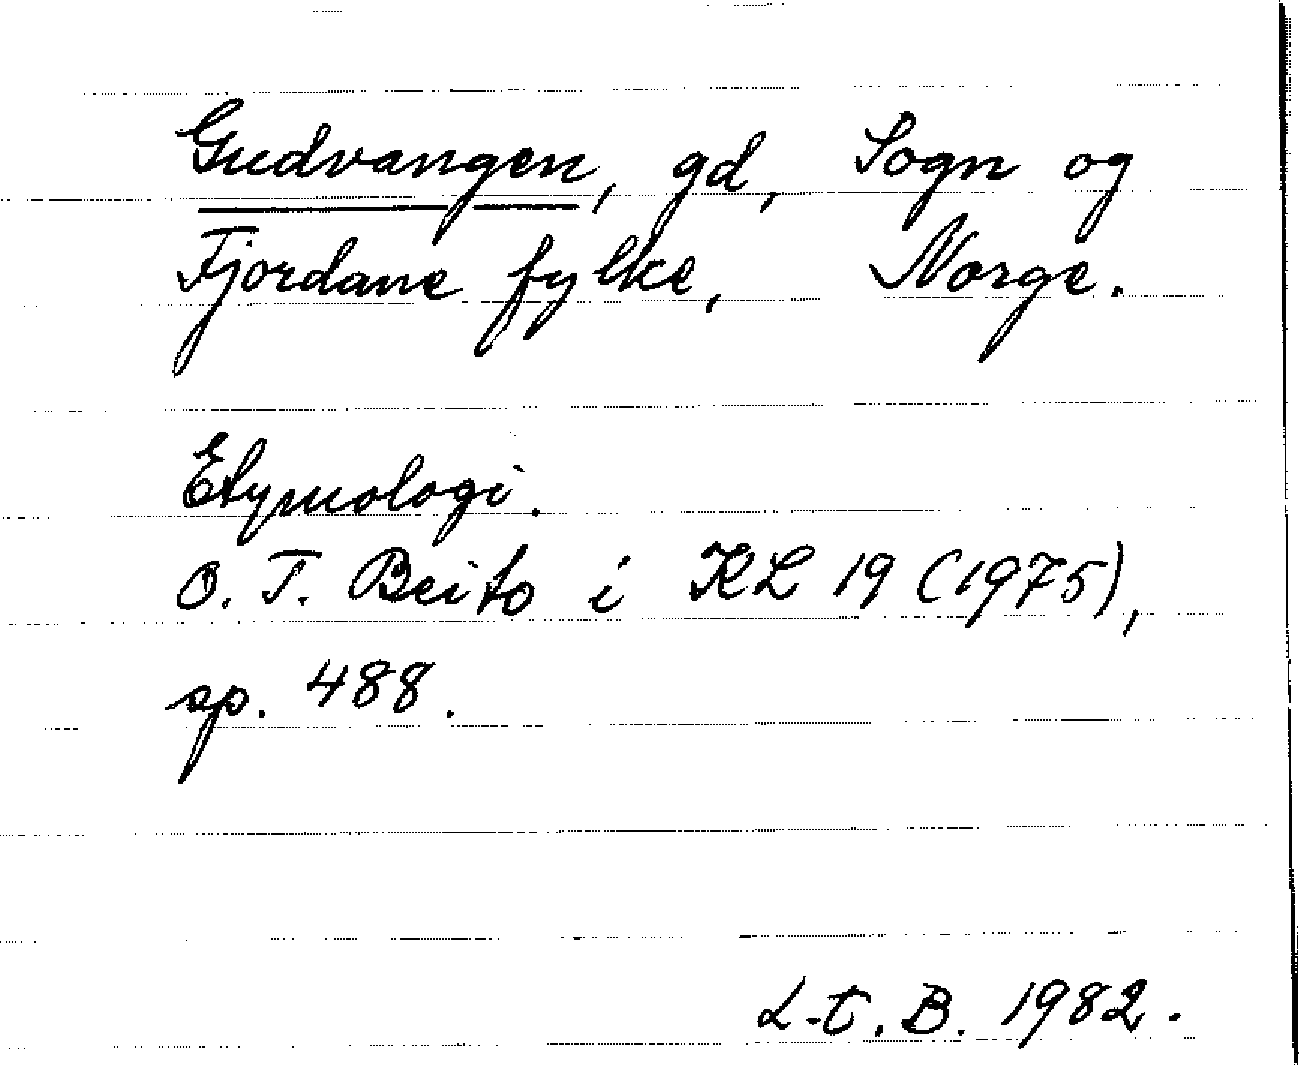 Gudvangen, gd, Sogn og
Fjordane fylke, Norge.
Etymologi.
O. T. Beito i KL 19 (1975),
sp. 488.
L-t. B. 1982.